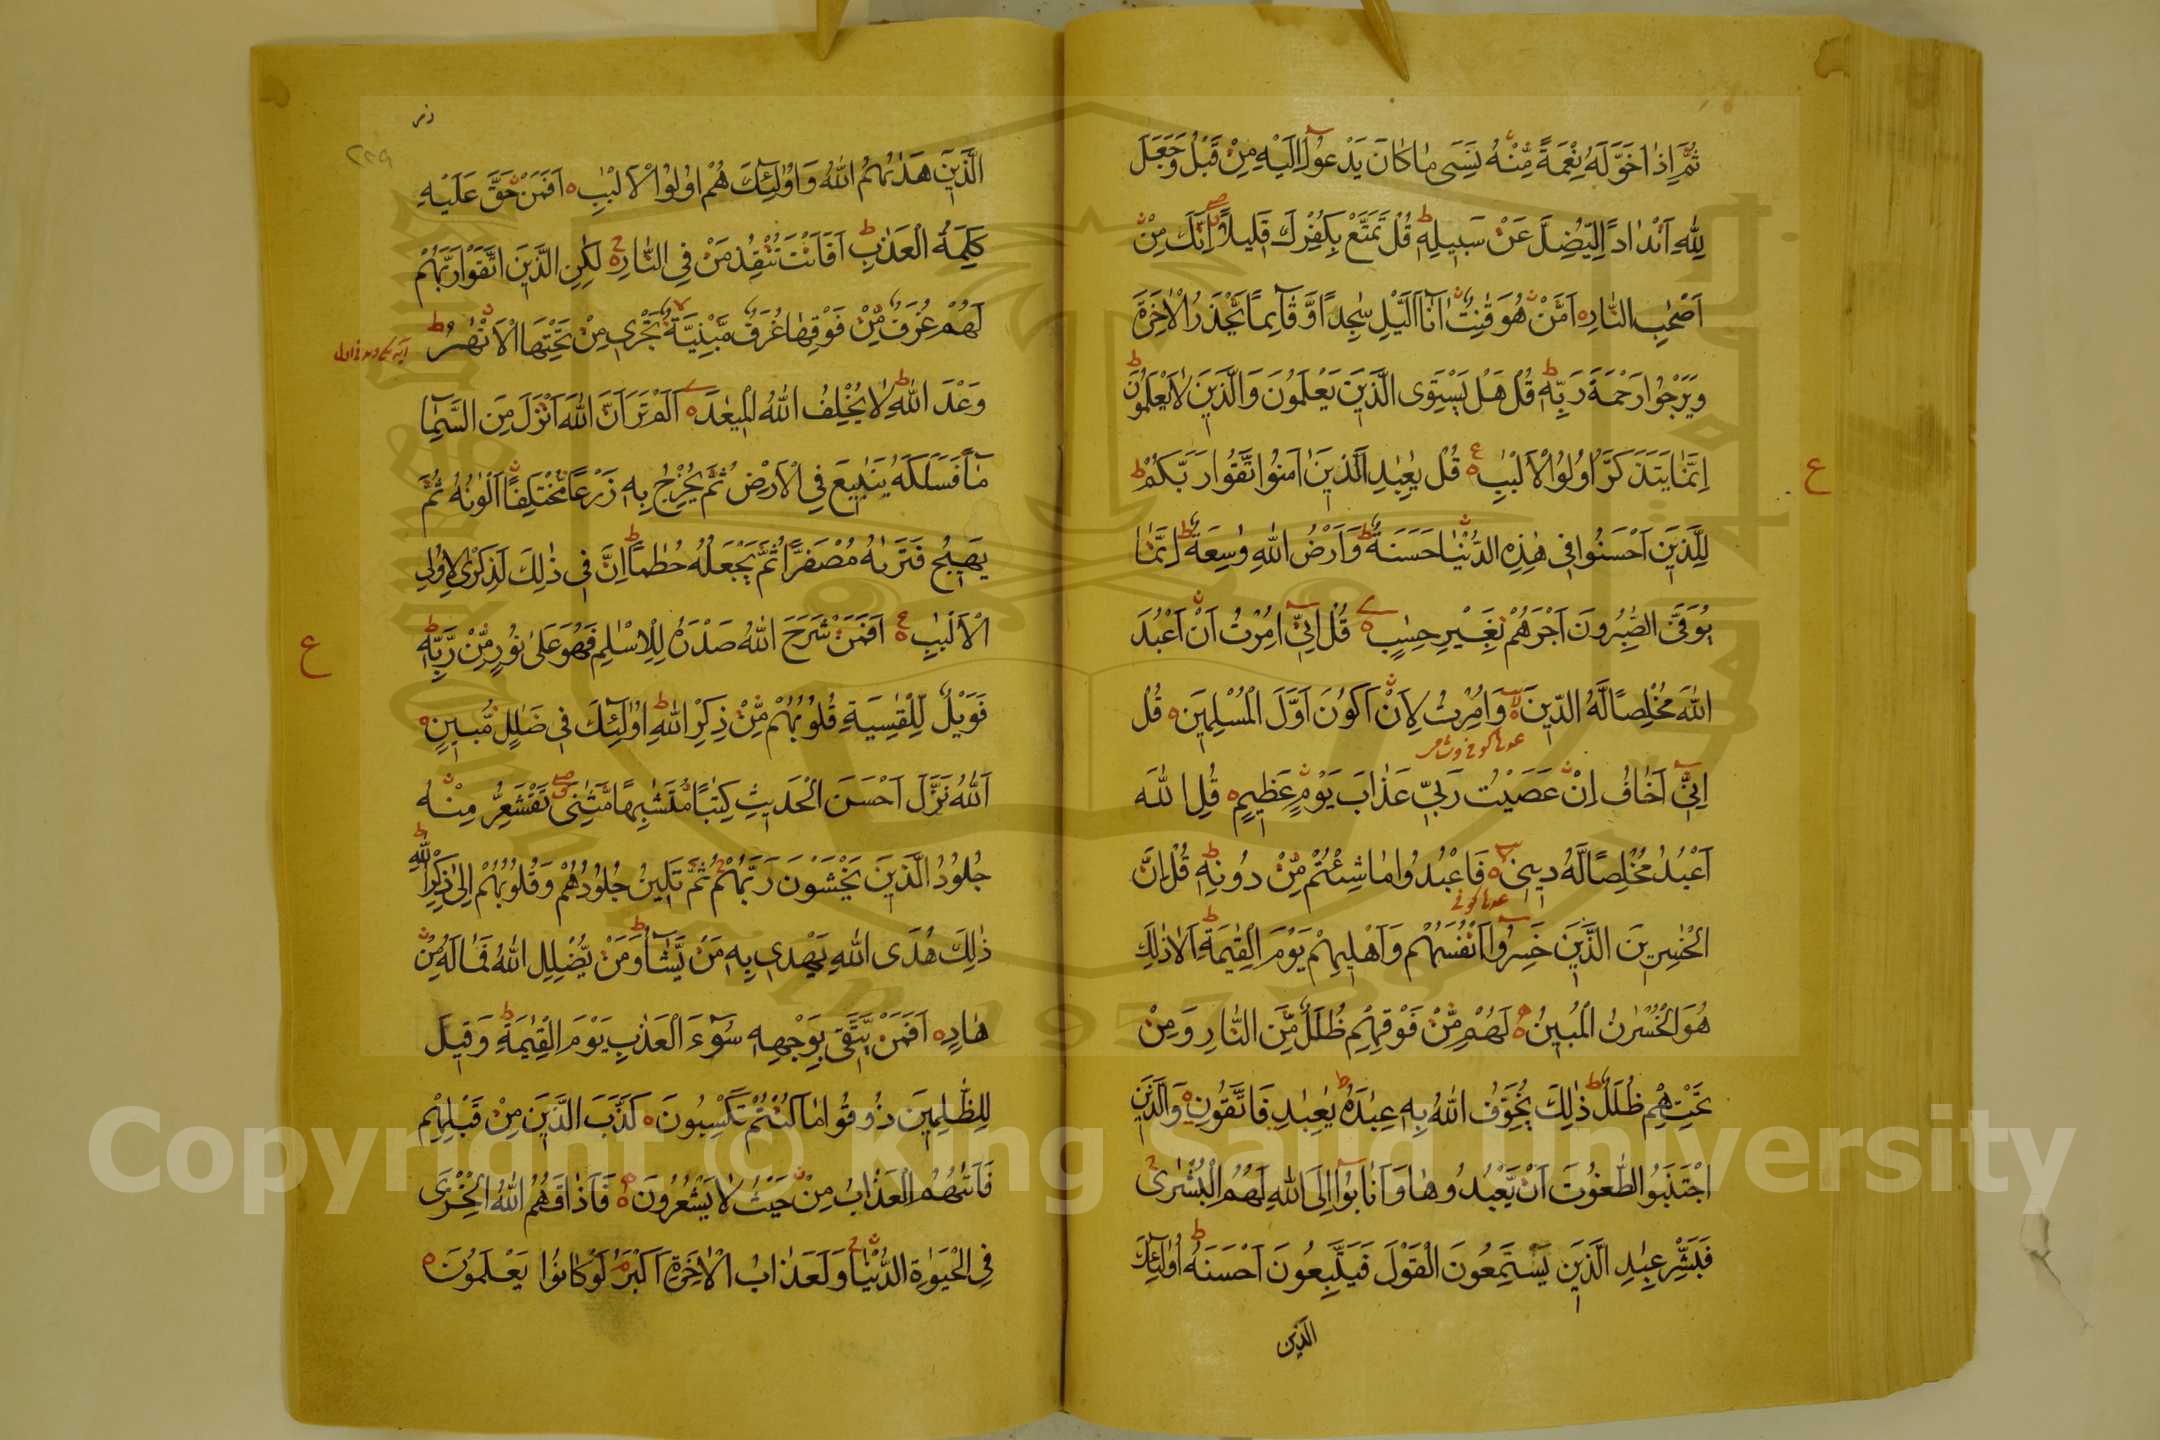 ثُمَّ إِذَا خَوَّلَهُ نِعْمَةً مِّنْهُ نَسِيَ مَا كَانَ يَدْعُوا إِلَيْهِ مِنْ قَبْلُ وَجَعَلَ
لِلّٰهِ أَنْدَادًا لِّيُضِلَّ عَنْ سَبِيلِهِ ط قُلْ تَمَتَّعْ بِكُفْرِكَ قَلِيلًا إِنَّكَ مِنْ
أَصْحٰبِ النَّارِ أَمَّنْ هُوَ قٰنِتٌ اٰنَآءَ الَّيْلِ سٰجِدًا وَّقَآئِمًا يَّحْذَرُ الْاٰخِرَةَ
وَيَرْجُوا رَحْمَةَ رَبِّهِ ط قُلْ هَلْ يَسْتَوِى الَّذِينَ يَعْلَمُونَ وَالَّذِينَ لَا يَعْلَمُونَ ط
إِنَّمَا يَتَذَكَّرُ أُولُوا الْأَلْبٰبِ ع قُلْ يٰعِبَادِ الَّذِينَ اٰمَنُوا اتَّقُوا رَبَّكُمْ ط
ع
لِلَّذِينَ أَحْسَنُوا فِى هٰذِهِ الدُّنْيَا حَسَنَةٌ ط وَأَرْضُ اللّٰهِ وٰسِعَةٌ ط إِنَّمَا
يُوَفَّى الصّٰبِرُونَ أَجْرَهُمْ بِغَيْرِ حِسٰبٍ قُلْ إِنِّى أُمِرْتُ أَنْ أَعْبُدَ
اللّٰهَ مُخْلِصًا لَّهُ الدِّينَ لا وَأُمِرْتُ لِأَنْ أَكُونَ أَوَّلَ الْمُسْلِمِينَ قُلْ
إِنِّى أَخَافُ إِنْ عَصَيْتُ رَبِّى عَذَابَ يَوْمٍ عَظِيمٍ قُلِ اللّٰهَ
أَعْبُدُ مُخْلِصًا لَّهُ دِينِى فَاعْبُدُوا مَا شِئْتُمْ مِّنْ دُونِهِ ط قُلْ إِنَّ
الْخٰسِرِينَ الَّذِينَ خَسِرُوا أَنْفُسَهُمْ وَأَهْلِيهِمْ يَوْمَ الْقِيٰمَةِ ط أَلَا ذٰلِكَ
هُوَ الْخُسْرَانُ الْمُبِينُ لَهُمْ مِّنْ فَوْقِهِمْ ظُلَلٌ مِّنَ النَّارِ وَمِنْ
تَحْتِهِمْ ظُلَلٌ ط ذٰلِكَ يُخَوِّفُ اللّٰهُ بِهِ عِبَادَهُ ط يٰعِبَادِ فَاتَّقُونِ وَالَّذِينَ
اجْتَنَبُوا الطّٰغُوتَ أَنْ يَّعْبُدُوهَا وَأَنَابُوا إِلَى اللّٰهِ لَهُمُ الْبُشْرٰى
فَبَشِّرْ عِبَادِ الَّذِينَ يَسْتَمِعُونَ الْقَوْلَ فَيَتَّبِعُونَ أَحْسَنَهُ ط أُولٰٓئِكَ
الَّذِينَ
٢٢٩
الَّذِينَ هَدٰىهُمُ اللّٰهُ وَأُولٰٓئِكَ هُمْ أُولُوا الْأَلْبٰبِ أَفَمَنْ حَقَّ عَلَيْهِ
كَلِمَةُ الْعَذَابِ ط أَفَأَنْتَ تُنْقِذُ مَنْ فِى النَّارِ ج لٰكِنِ الَّذِينَ اتَّقَوْا رَبَّهُمْ
لَهُمْ غُرَفٌ مِّنْ فَوْقِهَا غُرَفٌ مَّبْنِيَّةٌ تَجْرِى مِنْ تَحْتِهَا الْأَنْهٰرُ ط
وَعْدَ اللّٰهِ ط لَا يُخْلِفُ اللّٰهُ الْمِيعَادَ أَلَمْ تَرَ أَنَّ اللّٰهَ أَنْزَلَ مِنَ السَّمَآءِ
مَآءً فَسَلَكَهُ يَنَابِيعَ فِى الْأَرْضِ ثُمَّ يُخْرِجُ بِهِ زَرْعًا مُّخْتَلِفًا أَلْوٰنُهُ ثُمَّ
يَهِيجُ فَتَرٰىهُ مُصْفَرًّا ثُمَّ يَجْعَلُهُ حُطَامًا ط إِنَّ فِى ذٰلِكَ لَذِكْرٰى لِأُولِى
الْأَلْبٰبِ ع أَفَمَنْ شَرَحَ اللّٰهُ صَدْرَهُ لِلْإِسْلٰمِ فَهُوَ عَلٰى نُورٍ مِّنْ رَّبِّهِ ط
ع
فَوَيْلٌ لِّلْقٰسِيَةِ قُلُوبُهُمْ مِّنْ ذِكْرِ اللّٰهِ ط أُولٰٓئِكَ فِى ضَلٰلٍ مُّبِينٍ
اَللّٰهُ نَزَّلَ أَحْسَنَ الْحَدِيثِ كِتٰبًا مُّتَشَابِهًا مَّثَانِىَ تَقْشَعِرُّ مِنْهُ
جُلُودُ الَّذِينَ يَخْشَوْنَ رَبَّهُمْ ثُمَّ تَلِينُ جُلُودُهُمْ وَقُلُوبُهُمْ إِلٰى ذِكْرِ اللّٰهِ ط
ذٰلِكَ هُدَى اللّٰهِ يَهْدِى بِهِ مَنْ يَّشَآءُ ط وَمَنْ يُّضْلِلِ اللّٰهُ فَمَا لَهُ مِنْ
هَادٍ أَفَمَنْ يَّتَّقِى بِوَجْهِهِ سُوٓءَ الْعَذَابِ يَوْمَ الْقِيٰمَةِ ط وَقِيلَ
لِلظّٰلِمِينَ ذُوقُوا مَا كُنْتُمْ تَكْسِبُونَ كَذَّبَ الَّذِينَ مِنْ قَبْلِهِمْ
فَأَتٰىهُمُ الْعَذَابُ مِنْ حَيْثُ لَا يَشْعُرُونَ فَأَذَاقَهُمُ اللّٰهُ الْخِزْىَ
فِى الْحَيٰوةِ الدُّنْيَا ج وَلَعَذَابُ الْاٰخِرَةِ أَكْبَرُ م لَوْ كَانُوا يَعْلَمُونَ
Copyright © King Saud University
1957